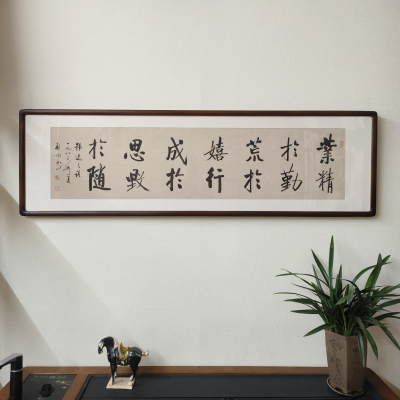 業精
於勤
荒於
嬉行
成於
思毀
於随